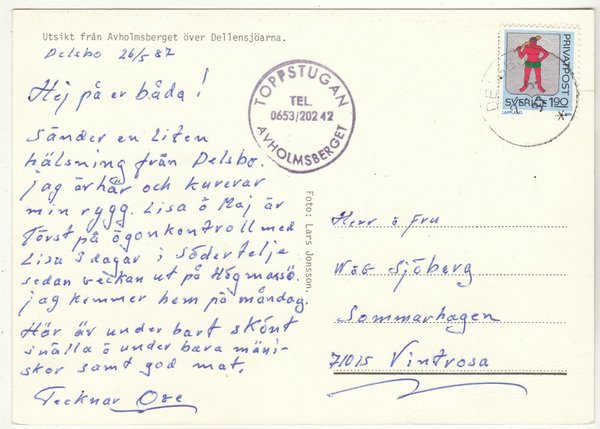 Utsikt från Avholmsberget över Dellensjöarna.
Delsbo 26/5 87
Hej på er båda!
Sänder en liten
hälsning från Delsbo.
jag är här och kurerar
min rygg. Lisa ö Maj är
först på ögonkontroll med
Lisa 3 dagar i Södertelje
sedan veckan ut på Högmarsö.
jag kommer hem på måndag.
Här är under bart skönt
snälla ö under bara männi-
skor samt god mat.
Tecknar Ove
TOPPSTUGAN
TEL.
0653/202 42
AVHOLMSBERGET
Foto: Lars Jonsson.
PRIVATPOST
SVERIGE 190
LAPPLAND
Herr ö Fru
W&G Sjöberg
Sommarhagen
71015 Vintrosa